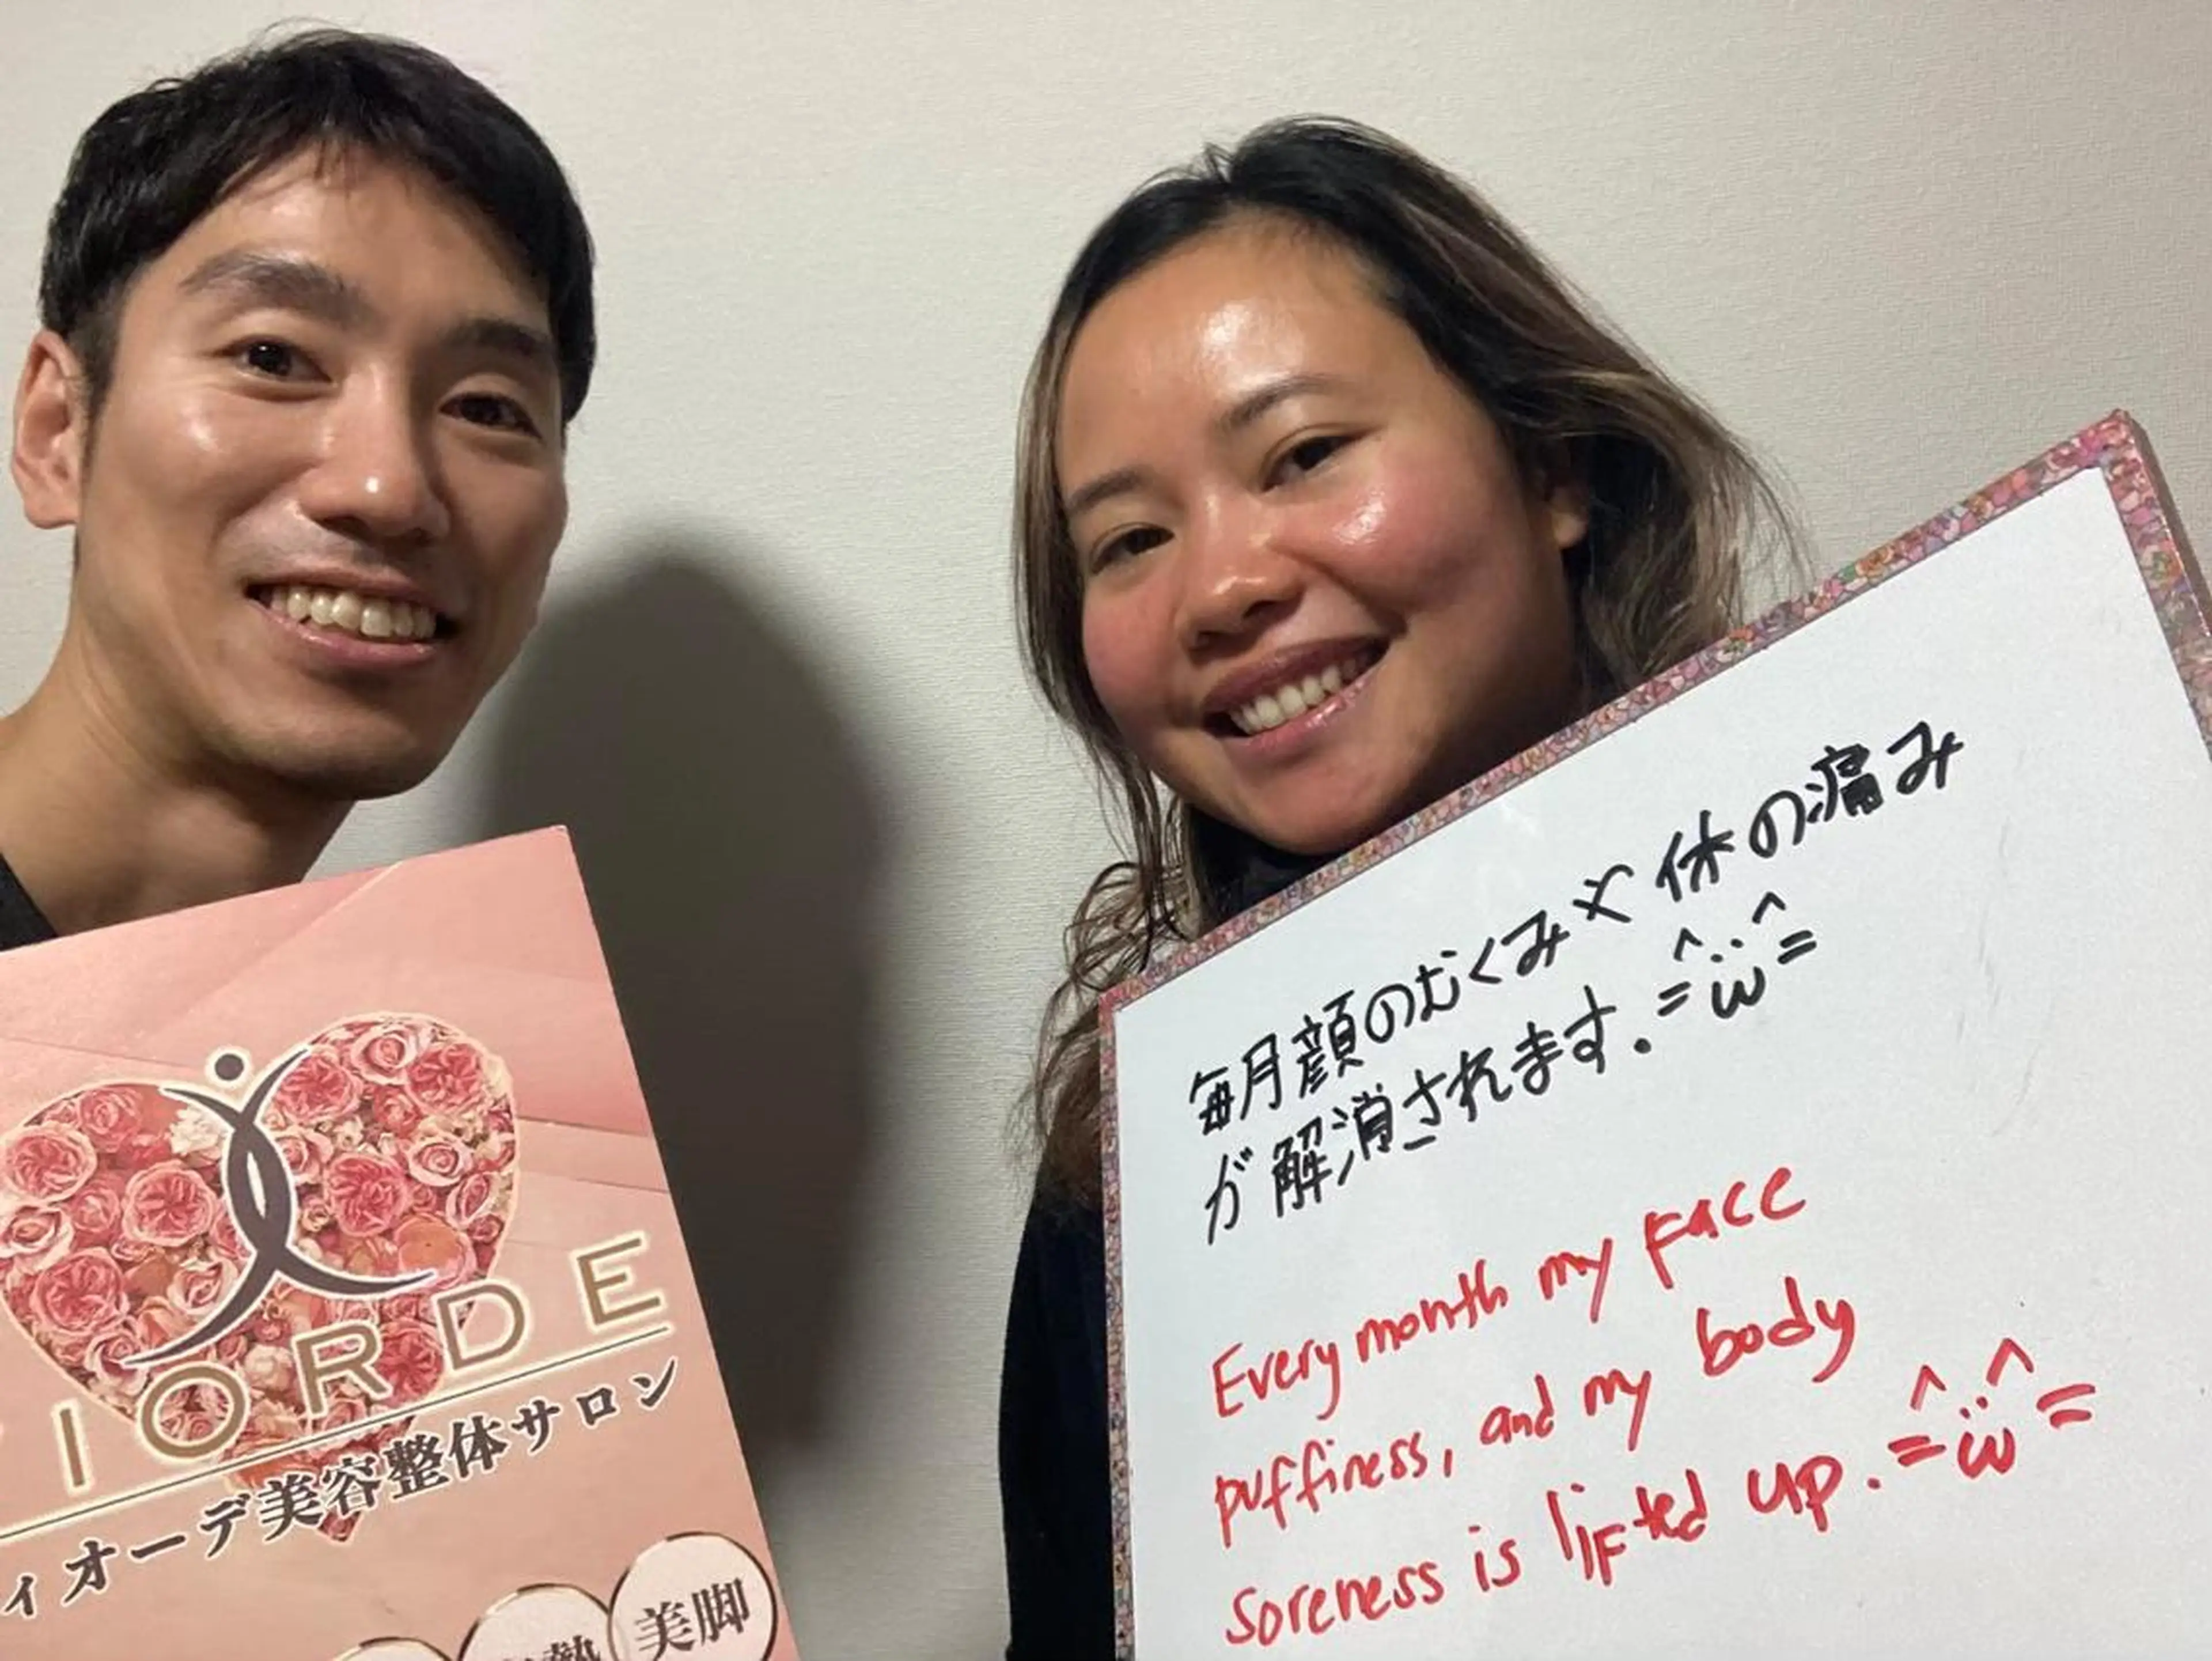 IORDE
ィオーデ美容整体サロン
美脚
毎月顔のむくみや休の痛み
が解消されます. =^ω^=
Every month my face
puffiness, and my body
soreness is lifted up. =^ω^=